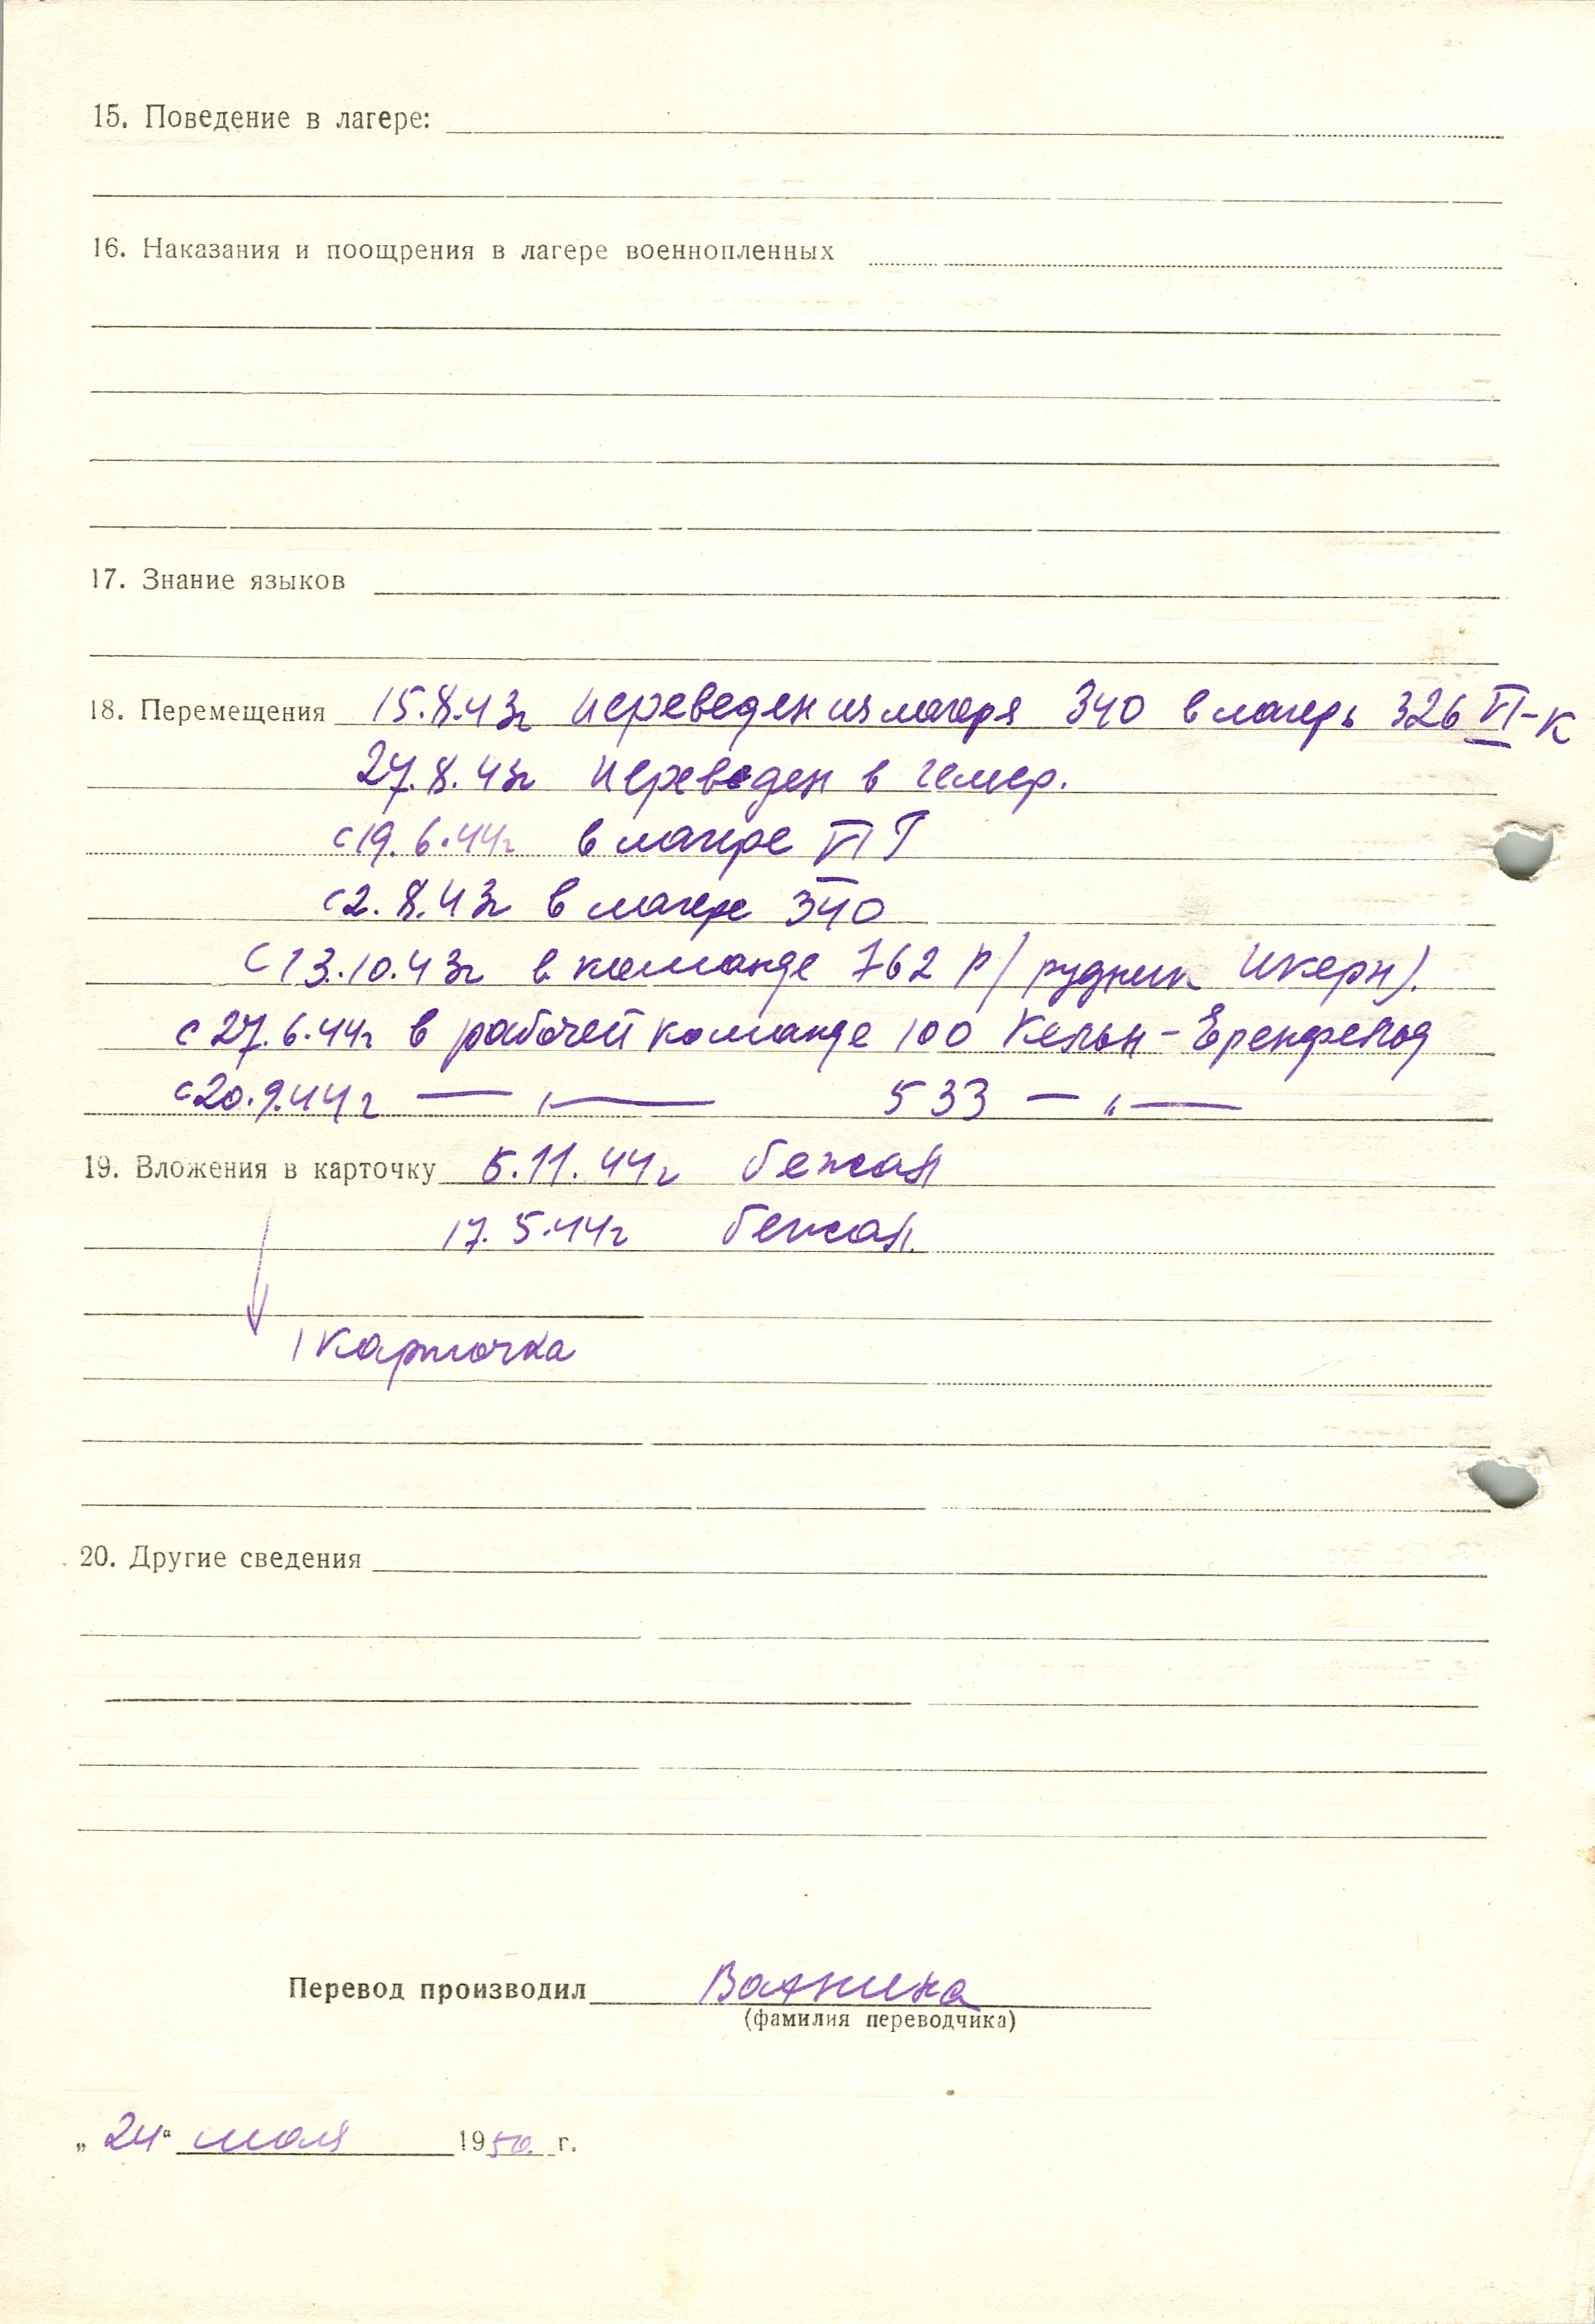 15. Поведение в лагере:
16. Наказания и поощрения в лагере военнопленных
17. Знание языков
18. Перемещения 15.8.43г переведен из лагеря 340 в лагерь 326 VI-К
27.8.43г переведен в Гемер.
с 19.6.44г в лагере VI Г
с 2.8.43г в лагере 340
с 13.10.43г в команде 762 Р/ рудник Икерн).
с 27.6.44г в рабочей команде 100 Кельн-Еренфельд
с 20.9.44г — „ — 533 — „ —
19. Вложения в карточку 5.11.44г бежал
17.5.44г бежал.
1 карточка
20. Другие сведения
Перевод производил
(фамилия переводчика)
„24“ 1950 г.